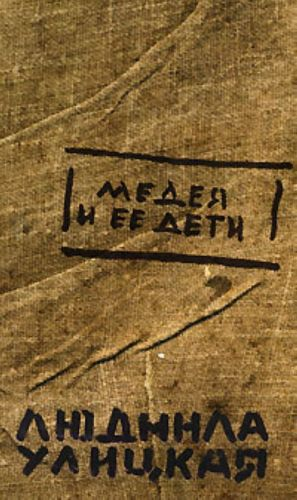 МЕДЕЯ
И ЕЕ ДЕТИ
ЛЮДМИЛА
УЛИЦКАЯ